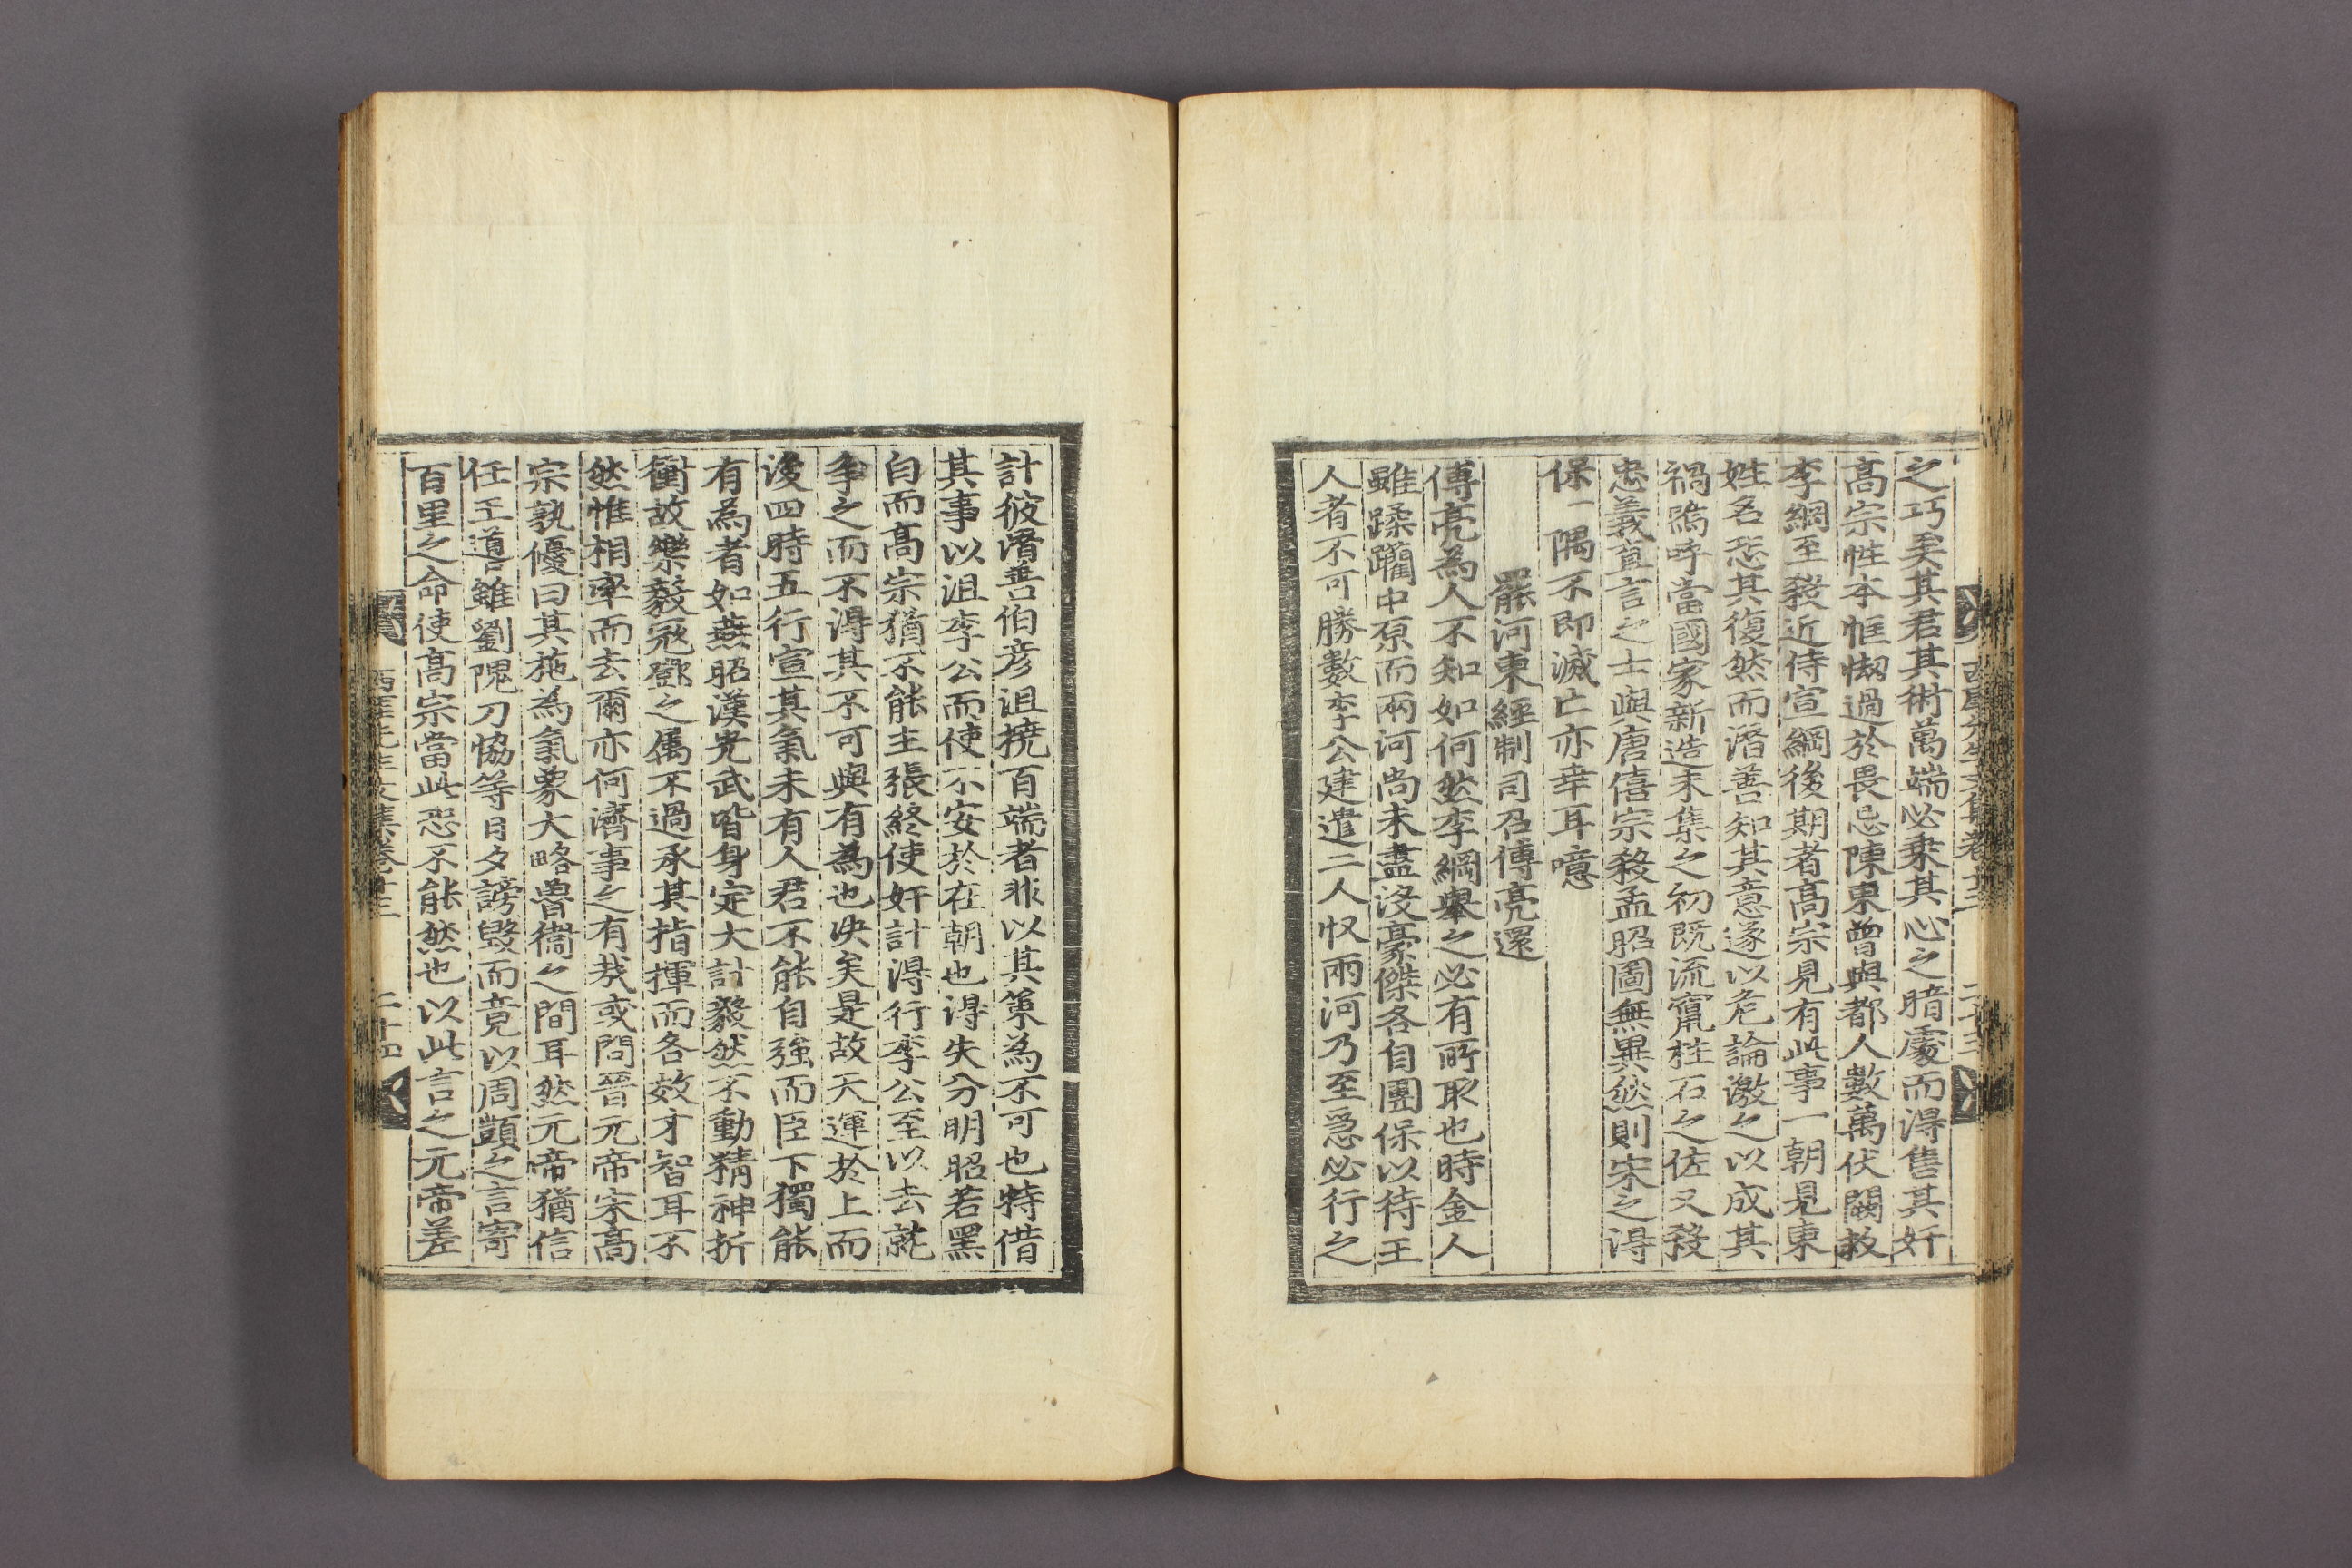 之巧矣其君其術萬端必乘其心之暗處而淂售其奸
高宗性本恇㥘過於畏忌陳東曾與都人數萬伏闕救
李綱至殺近侍宣綱後期者高宗見有此事一朝見東
姓名恐其復然而潛善知其意遂以危論激之以成其
禍嗚呼當國家新造未集之初既流竄柱石之佐又殺
忠義直言之士與唐僖宗殺孟昭圖無異然則宋之淂
保一隅不即滅亡亦幸耳噫
罷河東經制司召傅亮還
傅亮為人不知如何然李綱擧之必有所取也時金人
雖蹂躪中原而兩河尚未盡沒豪傑各自團保以待王
人者不可勝數李公建遣二人收兩河乃至急必行之
西厓先生文集卷十三
二十三
計彼潛善伯彦沮撓百端者非以其策為不可也特借
其事以沮李公而使不安於在朝也淂失分明昭若黑
白而高宗猶不能主張終使奸計淂行李公至以去就
争之而不淂其不可與有為也决矣是故天運於上而
後四時五行宣其氣未有人君不能自強而臣下獨能
有為者如燕昭漢光武皆身定大計毅然不動精神折
衝故樂毅冦鄧之属不過承其指揮而各效才智耳不
然惟相率而去爾亦何濟事之有㦲或問晉元帝宋高
宗孰優曰其施為氣象大略魯衛之間耳然元帝猶信
任王導雖劉隗刀恊等日夕謗毁而竟以周顗之言寄
百里之命使高宗當此恐不能然也以此言之元帝差
西厓先生文集卷十三
二十四